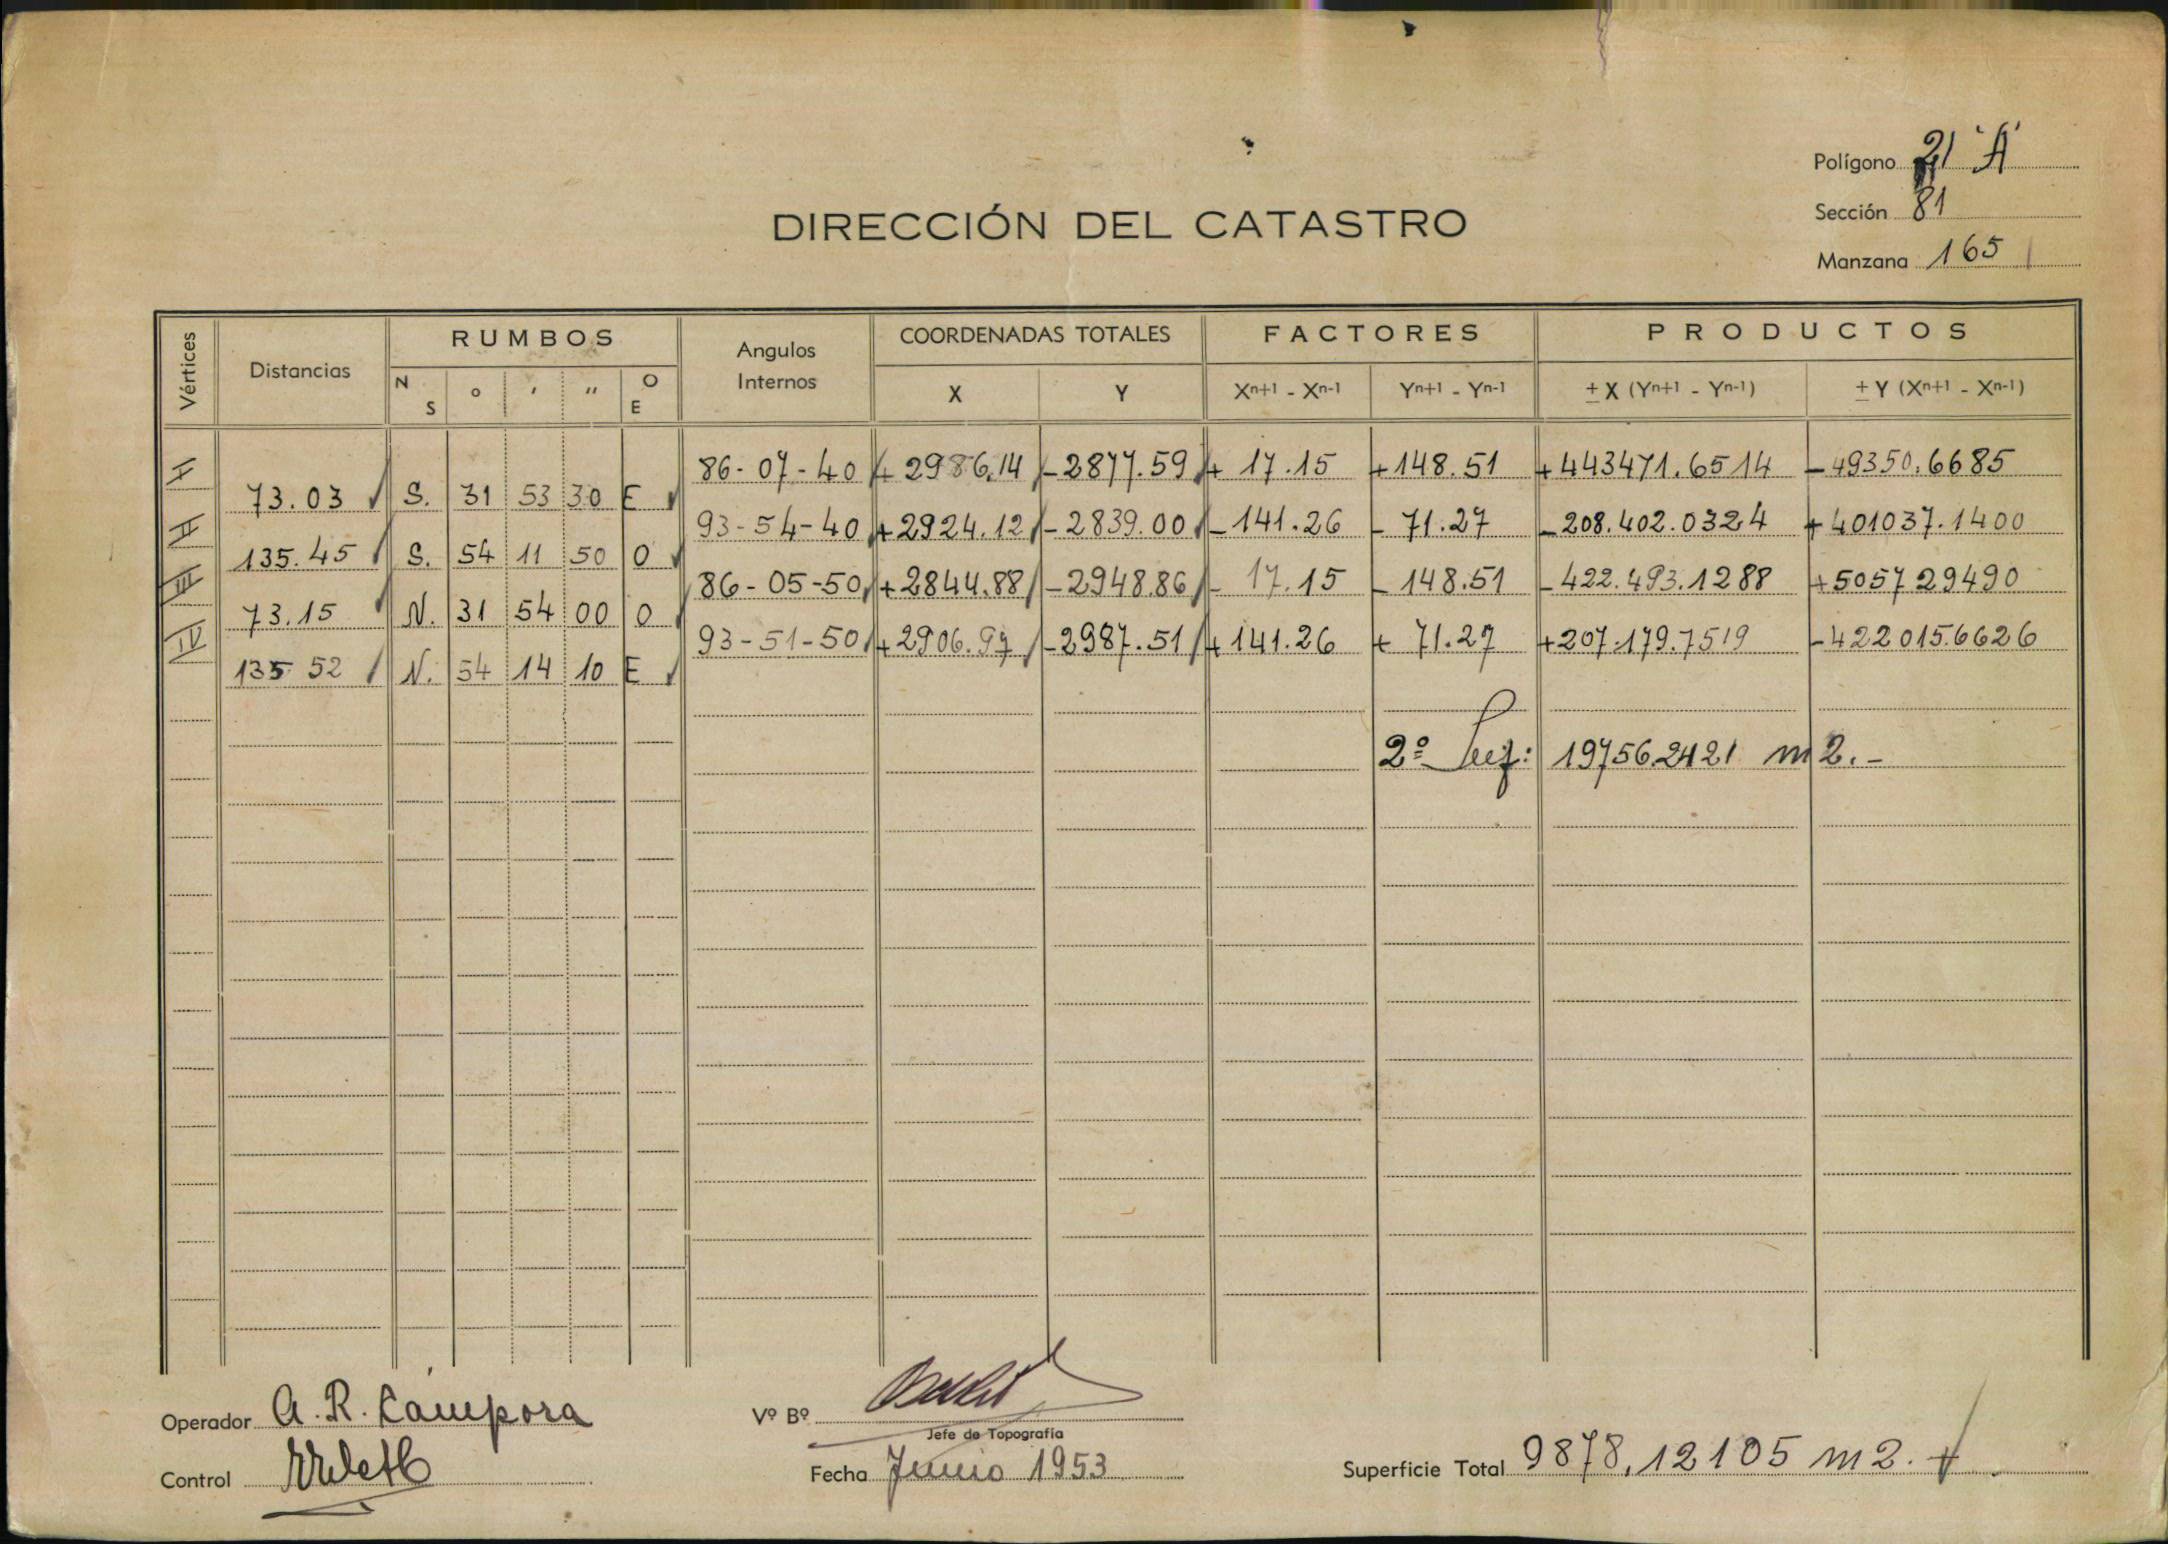 Polígono 21 "A"
Sección 81
Manzana 165
DIRECCIÓN DEL CATASTRO
Vértices Distancias RUMBOS Angulos Internos COORDENADAS TOTALES FACTORES PRODUCTOS
N S o ' " O E X Y Xn+1 - Xn-1 Yn+1 - Yn-1 ± X (Yn+1 - Yn-1) ± Y (Xn+1 - Xn-1)
I 86-07-40 + 2986.14 - 2877.59 + 17.15 + 148.51 + 443471.6514 - 49350.6685
73.03 S. 31 53 30 E
II 93-54-40 + 2924.12 - 2839.00 - 141.26 - 71.27 - 208.402.0324 + 401037.1400
135.45 S. 54 11 50 O
III 86-05-50 + 2844.88 - 2948.86 - 17.15 - 148.51 - 422.493.1288 + 505729490
73.15 N. 31 54 00 O
IV 93-51-50 + 2906.97 - 2987.51 + 141.26 + 71.27 + 207.179.7519 - 422015.6626
135 52 N. 54 14 10 E
2º Sup: 19756.2421 m2.-
Operador A. R. Cámpora
Vº Bº
Jefe de Topografía
Control
Fecha Junio 1953
Superficie Total 9878,12105 m2.